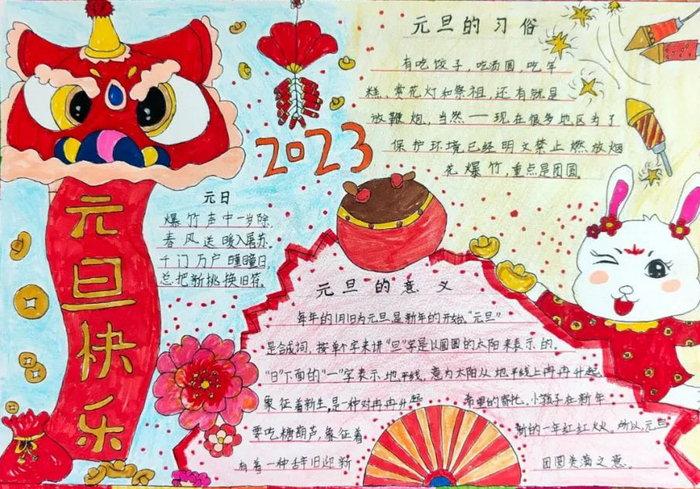 元旦快乐
2023
元旦的习俗
有吃饺子,吃汤圆,吃年
糕、赏花灯和祭祖,还有就是
放鞭炮,当然一一现在很多地区为了
保护环境已经明文禁止燃放烟
花爆竹,重点是团圆
元日
爆竹声中一岁除
春风送暖入屠苏.
千门万户曈曈日,
总把新桃换旧符.
元旦的意义
每年的1月1日为元旦是新年的开始."元旦"
是合成词,按单个字来讲"旦"字是以圆圆的太阳来表示的.
"日"下面的"一"字表示地平线,意为太阳从地平线上冉冉升起
象征着新生,是一种对冉冉升起 希望的寄托,小孩子在新年
要吃糖葫芦,象征着 新的一年红红火火,所以,元旦
有着一种辞旧迎新 团圆美满之意.